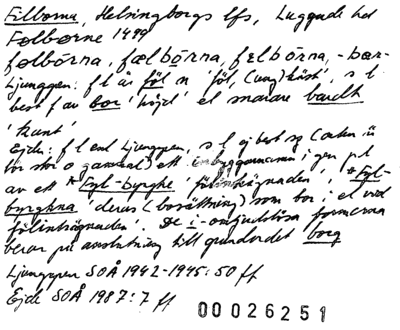 Filborna, Helsingborgs lfs, Luggude hd
Følborne 1499
følbörna, fælbörna, felbörna, -bar-
Ljunggen: f l är föl n 'föl, (ung) häst', s l
best f av bor 'höjd' el snarare bardh
'kant'
Ejde: f l enl Ljunggren, s l ej best sg (orten är
för stor o gammal) ett inbyggarnamn i gen pl
av ett *Fyl-byrghe 'fölinhägnaden', *Fyl-
byrghna 'deras (bosättning) som bor i el vid
fölinhägnaden'. De i-omljudslösa formerna
beror på anslutning till grundordet borg
Ljunggren SOÅ 1942-1945: 50 ff
Ejde SOÅ 1987: 7 ff
00026251